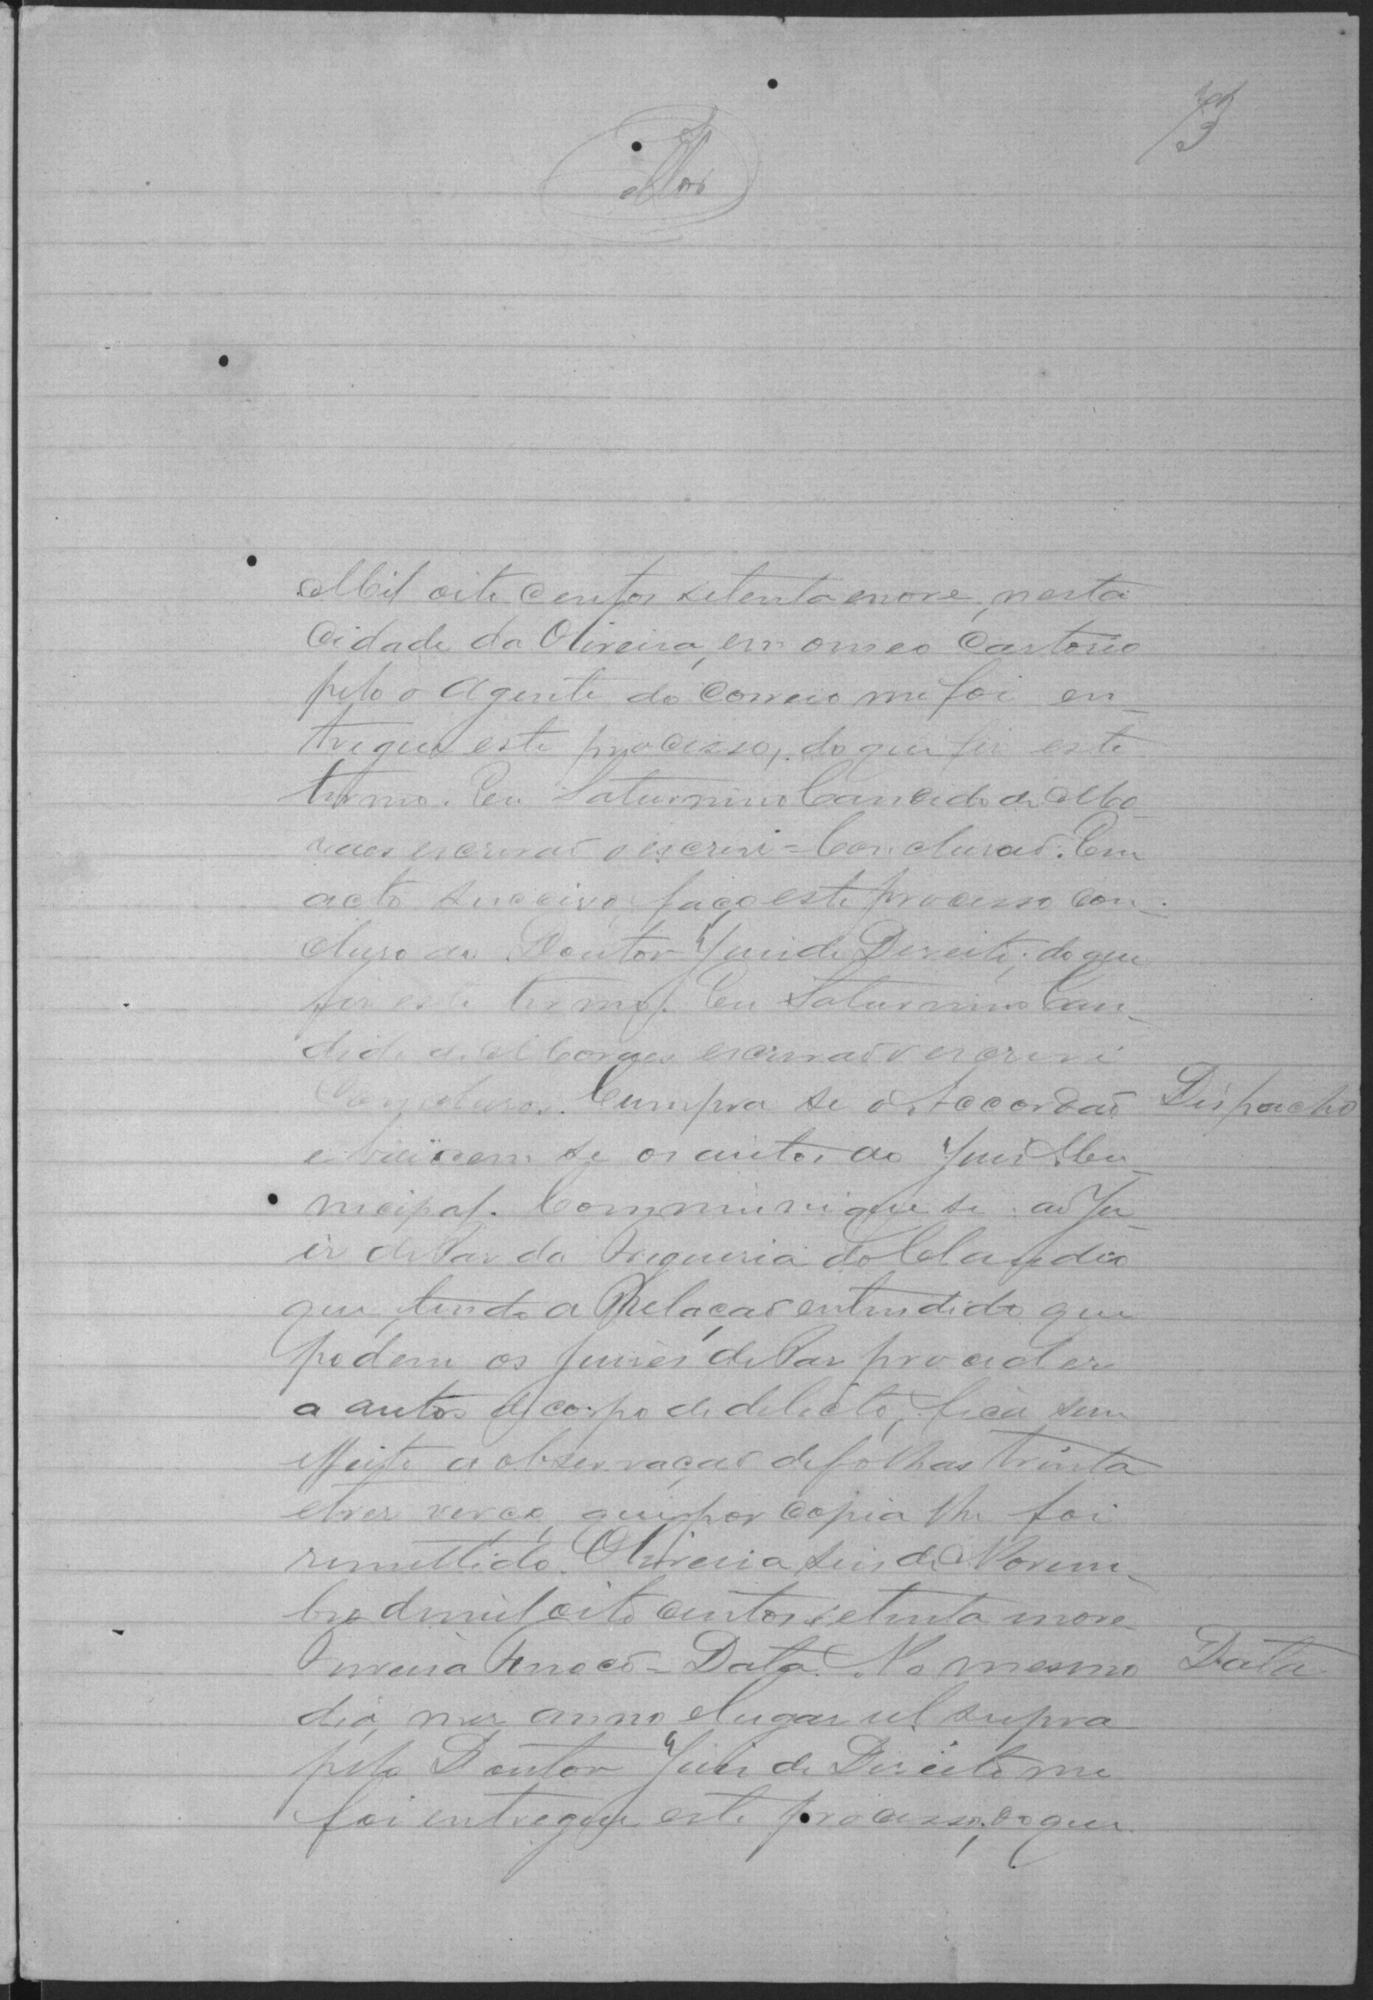 73
Mil oito centos setenta e nove, nesta
Cidade da Oliveira, em o meo Cartorio
pelo o Agente do Correio me foi en-
tregue este processo, do que fiz este
termo. Eu Saturnino Cancido de Mo-
raes escrivaõ o escrivi = Concluzaõ. Em
acto succeivo faço este processo con-
cluso ao Doutor Juiz de Direito; do que
fiz este termo. Eu Saturnino Can-
dido de Moraes escrivaõ o escrivi
Conclusos. Cumpra se o Accordaõ Dispacho
e baixem se os autos ao Juiz Mu-
nicipal. Communique se ao Ju-
iz de Paz da Freguezia do Claudio
que, tendo a Relaçaõ entendido que
podem os Juizes de Paz proceder
a autos de corpo de delicto, fica sem
effeito a observaçaõ de folhas trinta
e tres verço, que por copia lhe foi
remettido. Oliveira seis de Novem-
bro de mil oito centos setenta e nove
Data. No mesmo Data
dia, mez, anno e lugar ul supra
pelo Doutor Juiz de Direito me
foi entregue este processo, do que